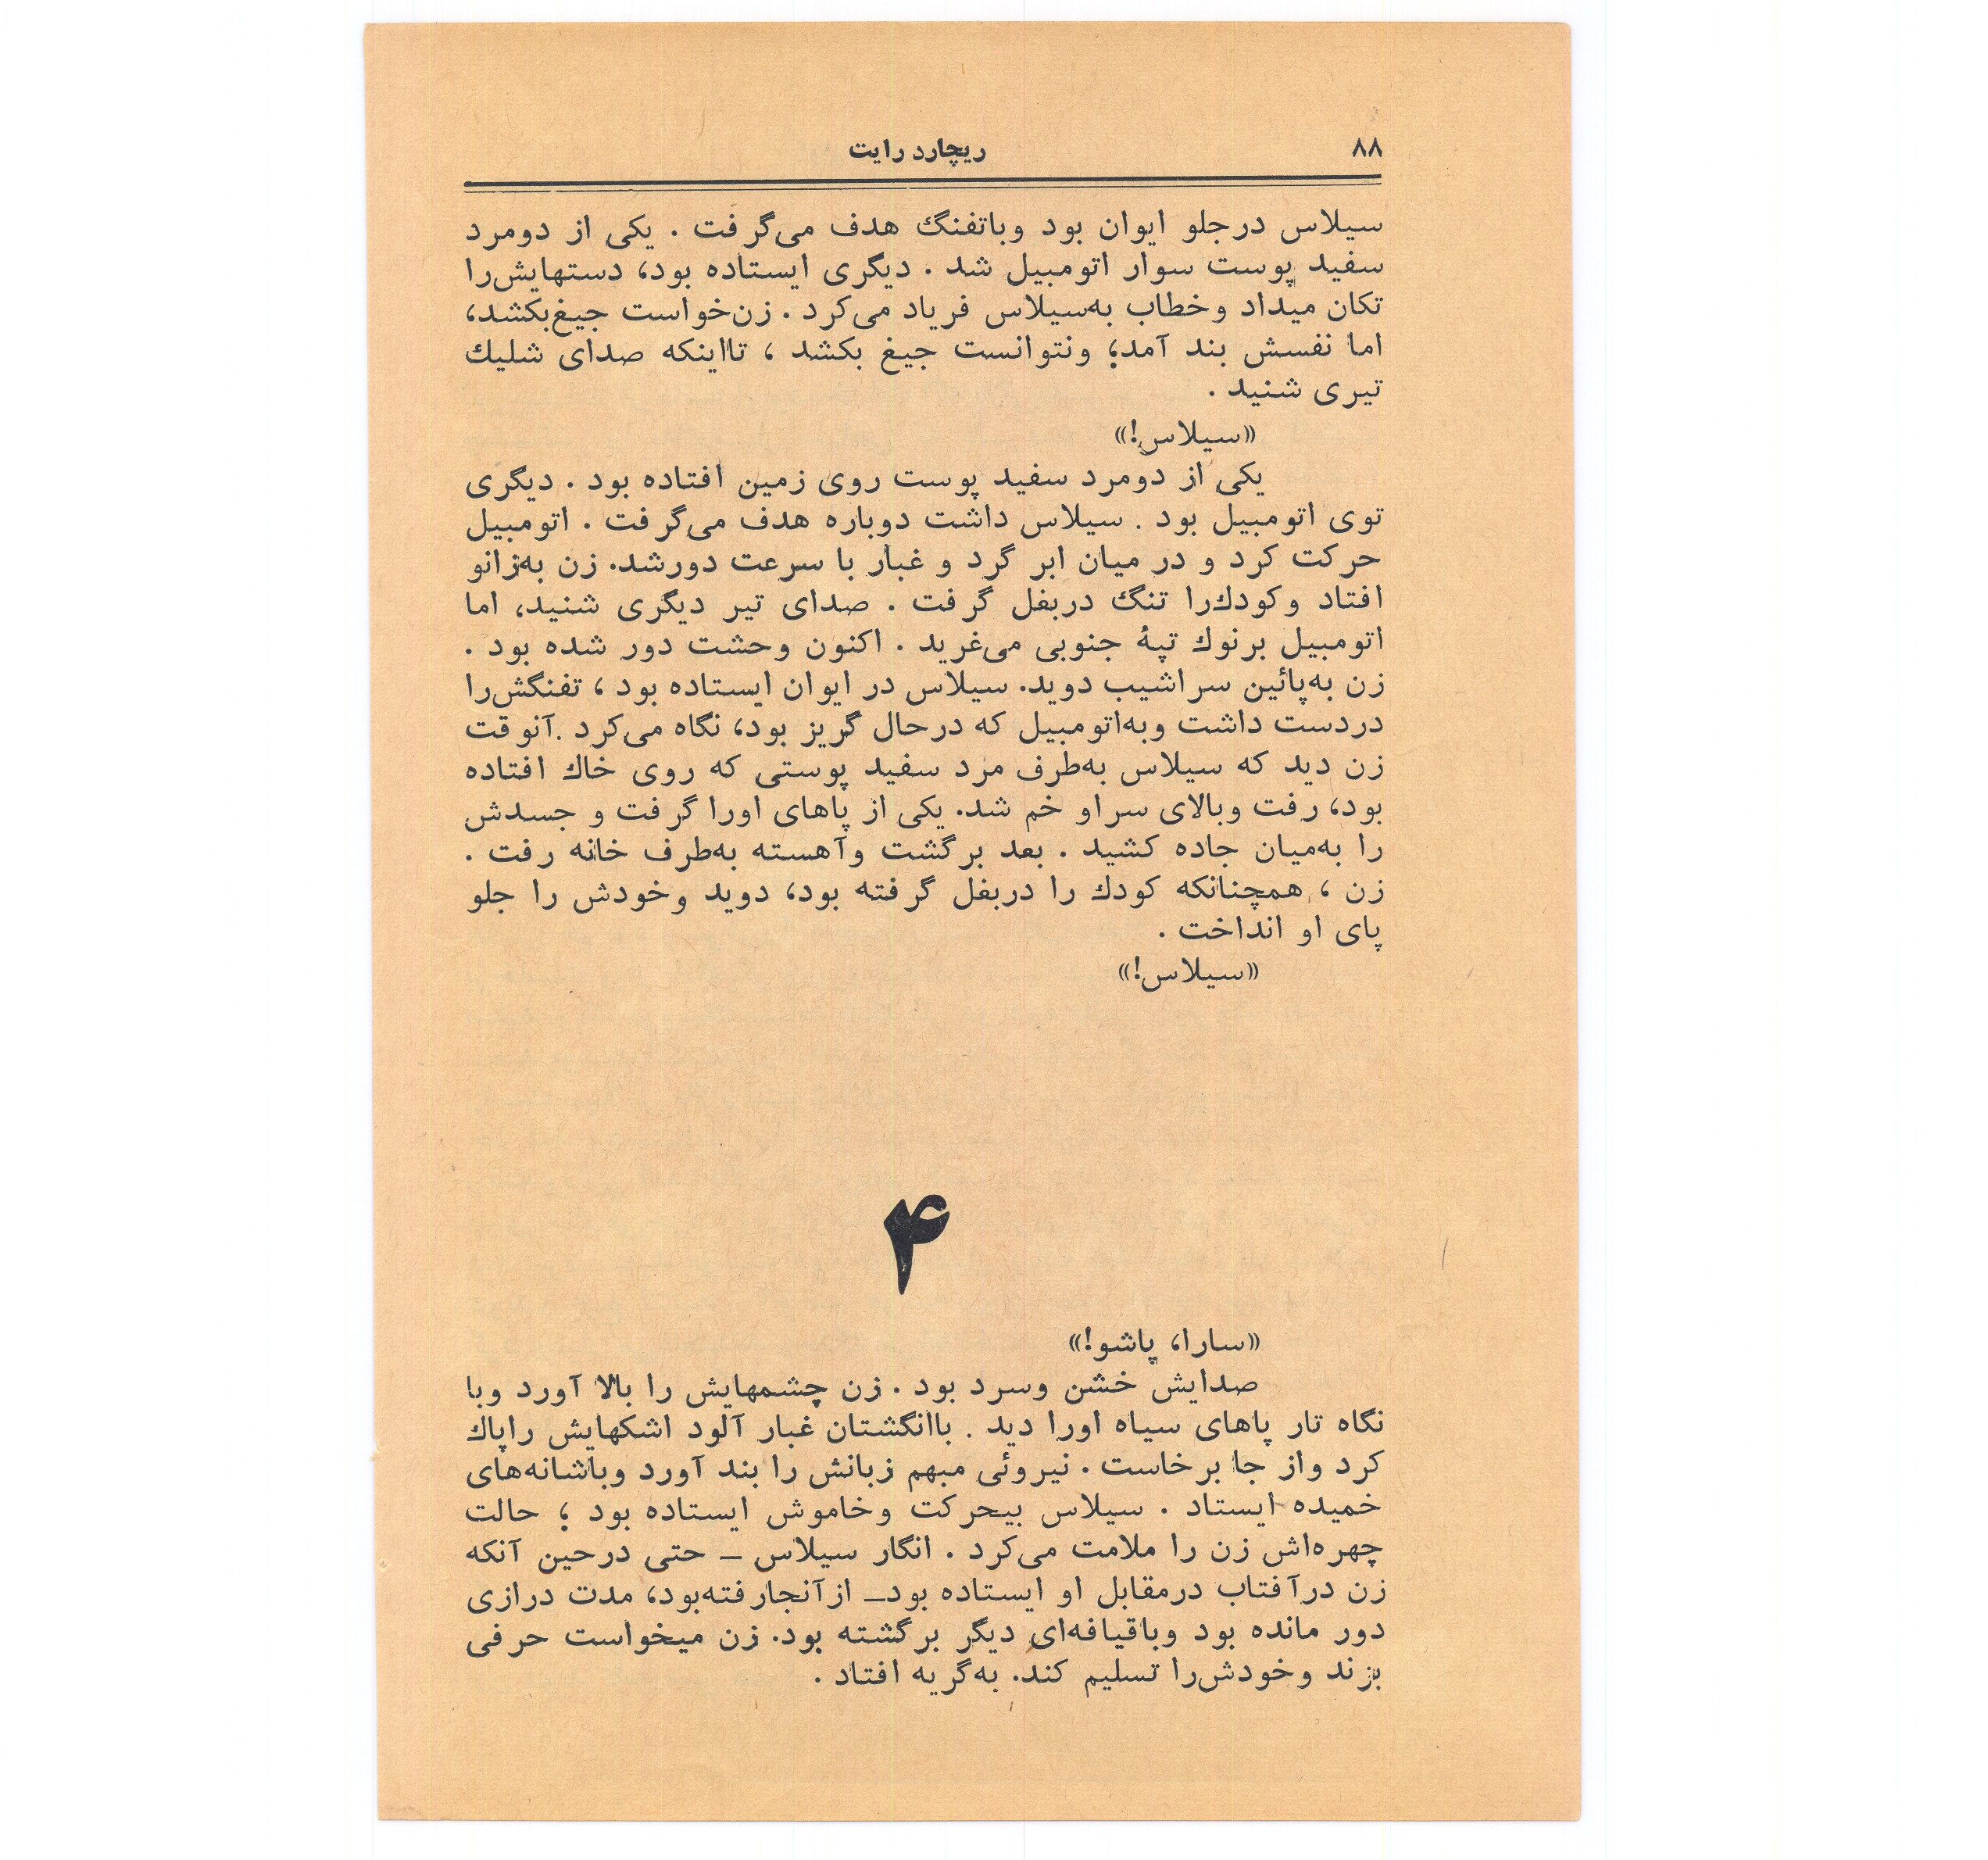 ۸۸
ریچارد رایت
سیلاس درجلو ایوان بود وباتفنگ هدف می‌گرفت . یکی از دومرد
سفید پوست سوار اتومبیل شد . دیگری ایستاده بود، دستهایش‌را
تکان میداد وخطاب به‌سیلاس فریاد می‌کرد . زن‌خواست جیغ‌بکشد،
اما نفسش بند آمد؛ ونتوانست جیغ بکشد ، تااینکه صدای شلیك
تیری شنید .
«سیلاس!»
یکی از دومرد سفید پوست روی زمین افتاده بود . دیگری
توی اتومبیل بود . سیلاس داشت دوباره هدف می‌گرفت . اتومبیل
حرکت کرد و در میان ابر گرد و غبار با سرعت دورشد. زن به‌زانو
افتاد وکودك‌را تنگ دربغل گرفت . صدای تیر دیگری شنید، اما
اتومبیل برنوك تپۀ جنوبی می‌غرید . اکنون وحشت دور شده بود .
زن به‌پائین سراشیب دوید. سیلاس در ایوان ایستاده بود ، تفنگش‌را
دردست داشت وبه‌اتومبیل که درحال گریز بود، نگاه می‌کرد .آنوقت
زن دید که سیلاس به‌طرف مرد سفید پوستی که روی خاك افتاده
بود، رفت وبالای سراو خم شد. یکی از پاهای اورا گرفت و جسدش
را به‌میان جاده کشید . بعد برگشت وآهسته به‌طرف خانه رفت .
زن ، همچنانکه کودك را دربغل گرفته بود، دوید وخودش را جلو
پای او انداخت .
«سیلاس!»
۴
«سارا، پاشو!»
صدایش خشن وسرد بود . زن چشمهایش را بالا آورد وبا
نگاه تار پاهای سیاه اورا دید . باانگشتان غبار آلود اشکهایش راپاك
کرد واز جا برخاست . نیروئی مبهم زبانش را بند آورد وباشانه‌های
خمیده ایستاد . سیلاس بیحرکت وخاموش ایستاده بود ؛ حالت
چهره‌اش زن را ملامت می‌کرد . انگار سیلاس – حتی درحین آنکه
زن درآفتاب درمقابل او ایستاده بود– ازآنجارفته‌بود، مدت درازی
دور مانده بود وباقیافه‌ای دیگر برگشته بود. زن میخواست حرفی
بزند وخودش‌را تسلیم کند. به‌گریه افتاد .